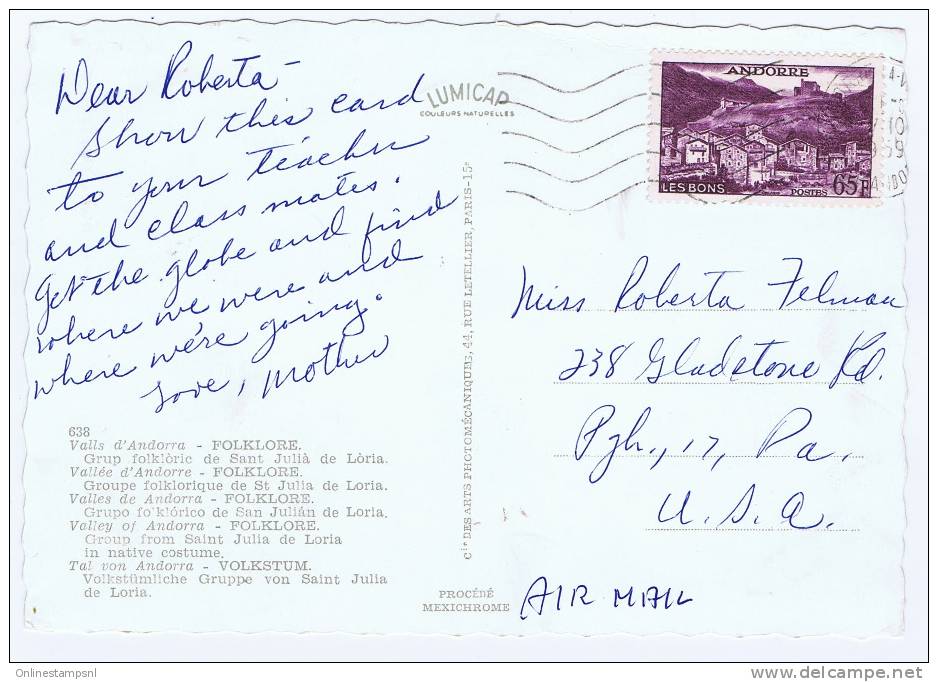 Dear Roberta -
Show this card
to your teacher
and class mates.
Get the globe and find
where we were and
where we're going.
Love, Mother
LUMICAP
COULEURS NATURELLES
ANDORRE
LES BONS
POSTES
65F
10
59
Miss Roberta Felman
238 Gladstone Rd.
Pgh., 17, Pa.
U.S.A.
AIR MAIL
638
Valls d'Andorra - FOLKLORE.
Grup folklòric de Sant Julià de Lòria.
Vallée d'Andorre - FOLKLORE.
Groupe folklorique de St Julia de Loria.
Valles de Andorra - FOLKLORE.
Grupo folklórico de San Julián de Loria.
Valley of Andorra - FOLKLORE.
Group from Saint Julia de Loria
in native costume.
Tal von Andorra - VOLKSTUM.
Volkstümliche Gruppe von Saint Julia
de Loria.
Cie DES ARTS PHOTOMÉCANIQUES, 44, RUE LETELLIER, PARIS-15e
PROCÉDÉ
MEXICHROME
Onlinestampsnl
delcampe.net